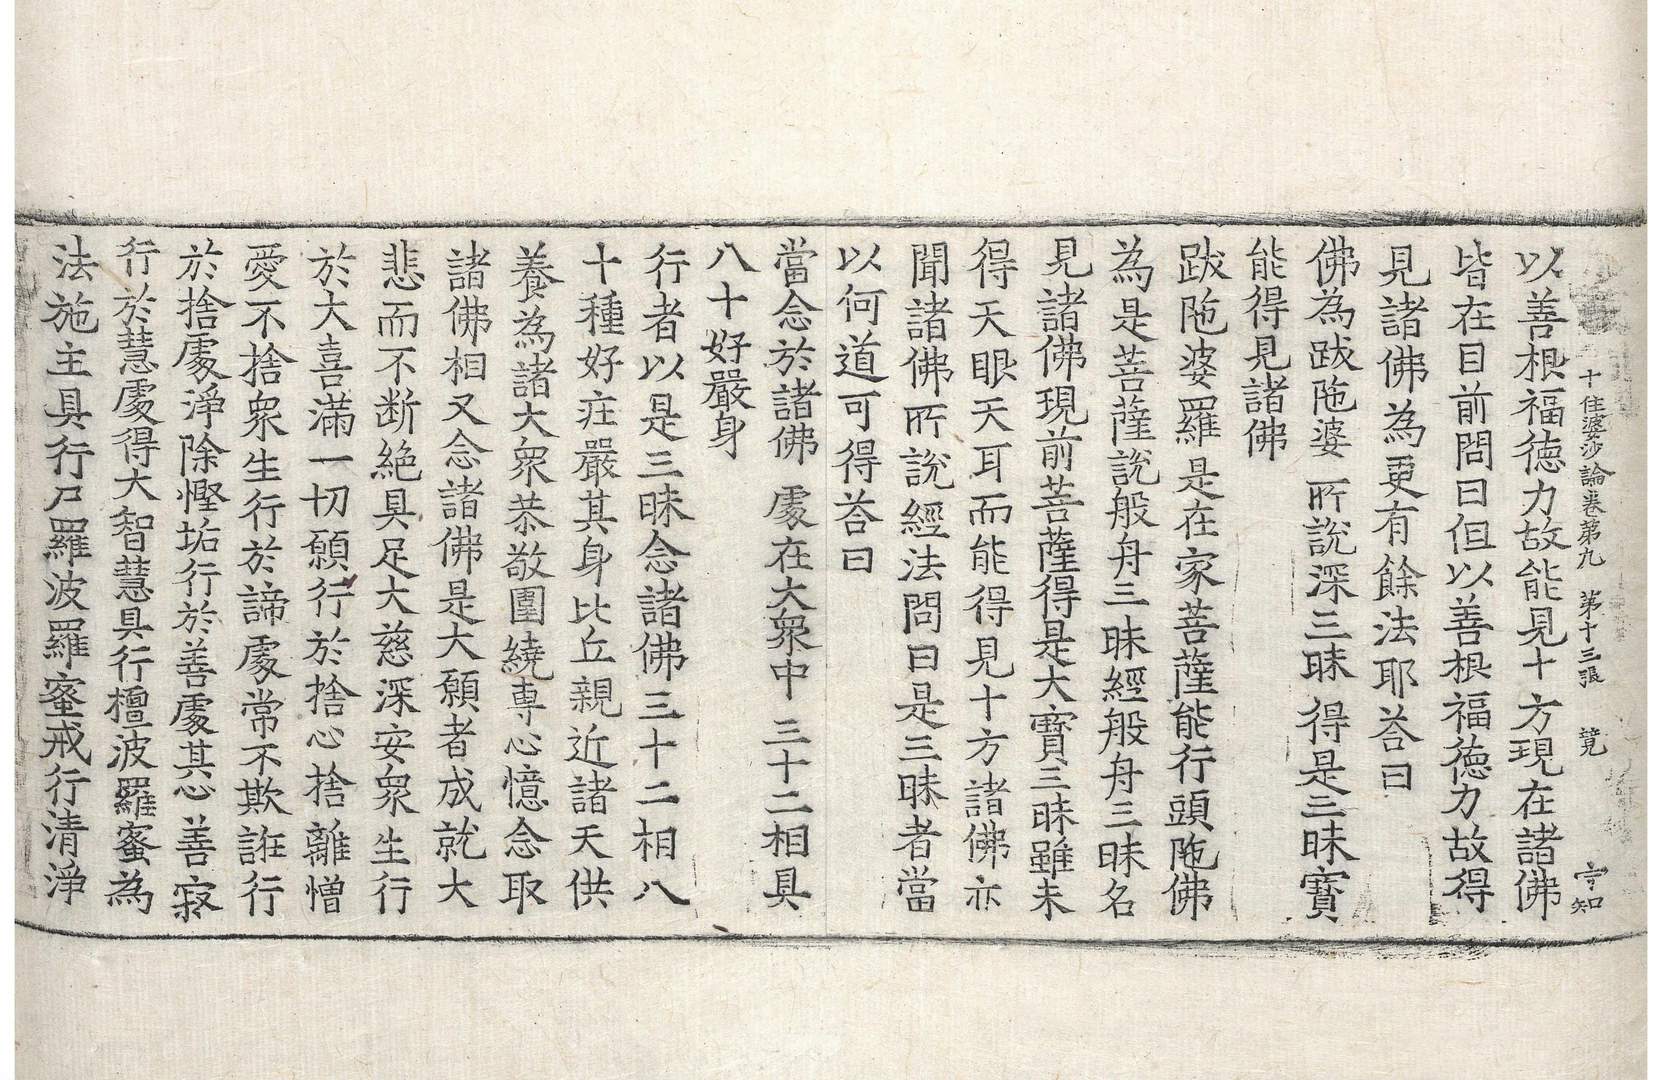 十住婆沙論卷第九　第十三張　覽　守知
以善根福德力故能見十方現在諸佛
皆在目前問曰但以善根福德力故得
見諸佛為更有餘法耶荅曰
佛為跋陁婆　所說深三昧　得是三昧寶
能得見諸佛
跋陁婆羅是在家菩薩能行頭陁佛
為是菩薩說般舟三昧經般舟三昧名
見諸佛現前菩薩得是大寶三昧雖未
得天眼天耳而能得見十方諸佛亦
聞諸佛所說經法問曰是三昧者當
以何道可得荅曰
當念於諸佛　處在大眾中　三十二相具
八十好嚴身
行者以是三昧念諸佛三十二相八
十種好庄嚴其身比丘親近諸天供
養為諸大眾恭敬圍繞専心憶念取
諸佛相又念諸佛是大願者成就大
悲而不断絕具足大慈深安眾生行
於大喜滿一切願行於捨心捨離憎
愛不捨眾生行於諦處常不欺誑行
於捨處淨除慳垢行於善處其心善寂
行於慧處得大智慧具行檀波羅蜜為
法施主具行尸羅波羅蜜戒行清淨